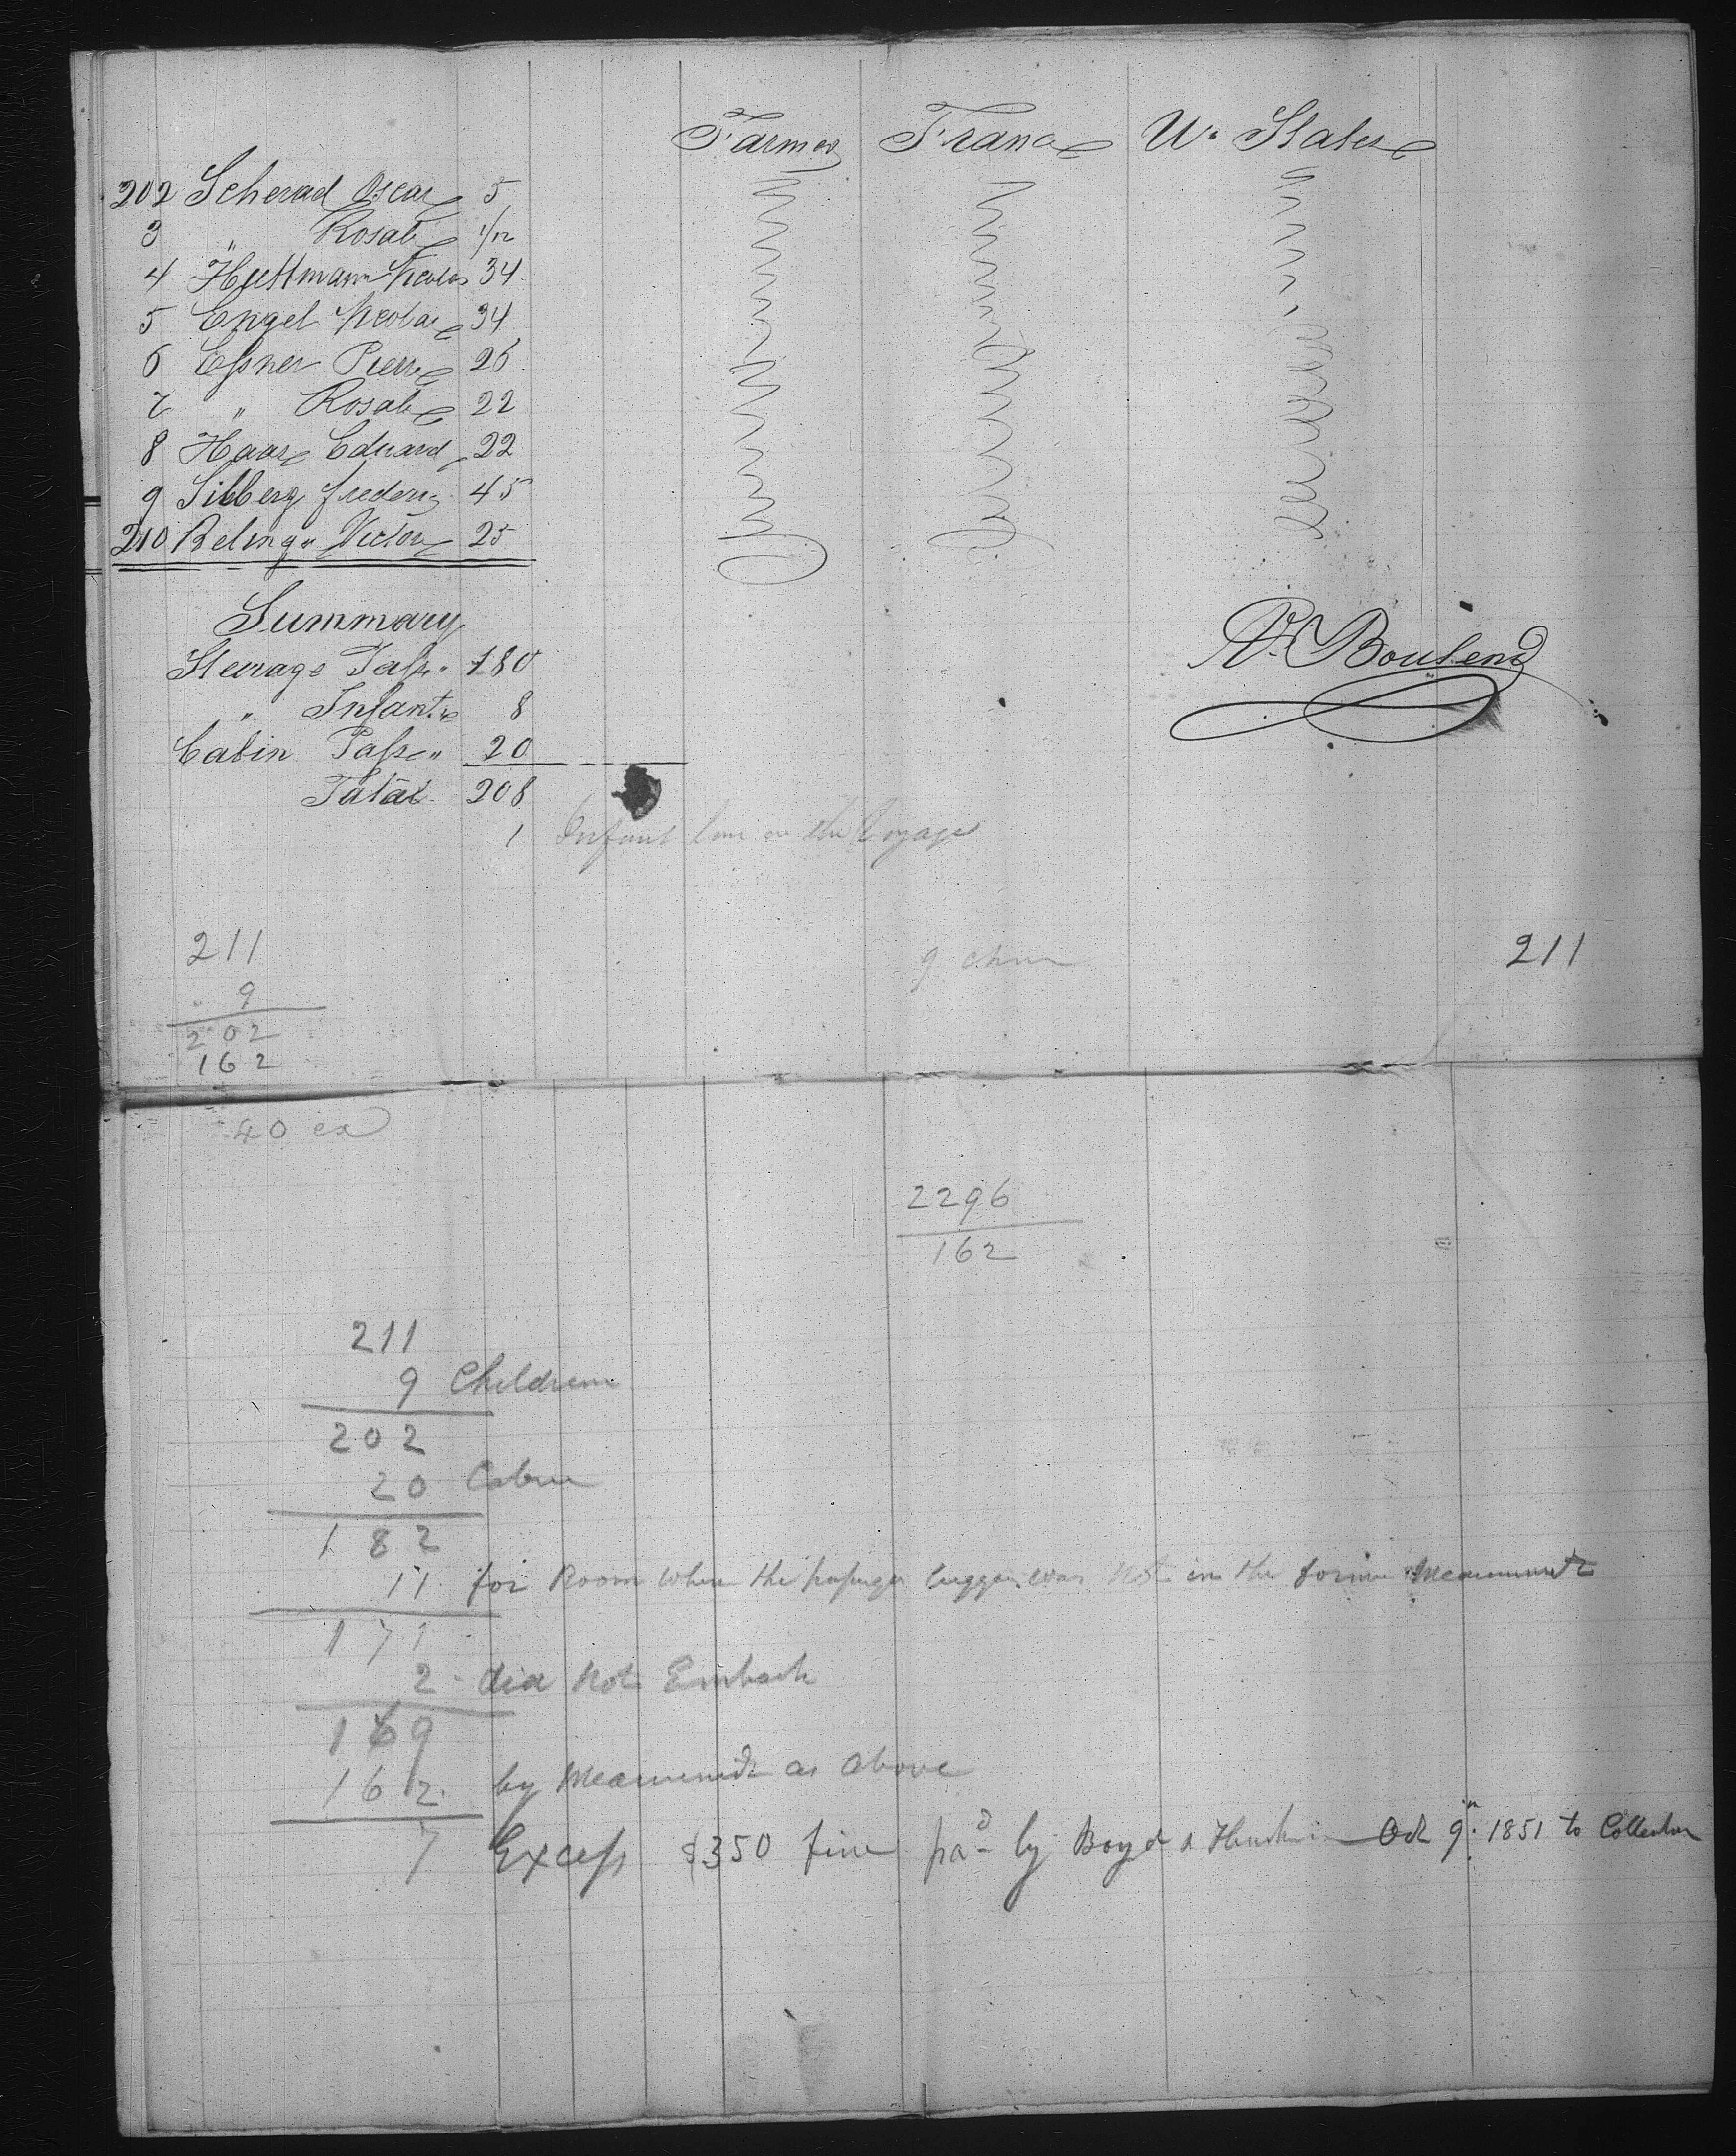 Farmer France U. States
202 Scherad Oscar 5
3 " Rosali 1/12
4 Huttmann Nicolas 34
5 Engel Nicolas 34
6 Eſsner Pierre 26
7 " Rosali 22
8 Haas Eduard 22
9 Silberg frederiz 45
210 Relinger Victor 25
Summary
Steerage Paſs. " 180
" Infants 8
Cabin Paſs. " 20
Total 208
1 Infant born on the Voyage
211
9
202
162
40 ex
9 chn
211
2296
162
211
9 Children
202
20 Cabin
182
11 for Room where the paſsenger luggage was Not in the former Measurement
171
2 did Not Embark
169
162 by Measurement as above
7 Exceſs $350 fine pad by Boyd & Oct 9th 1851 to Collector